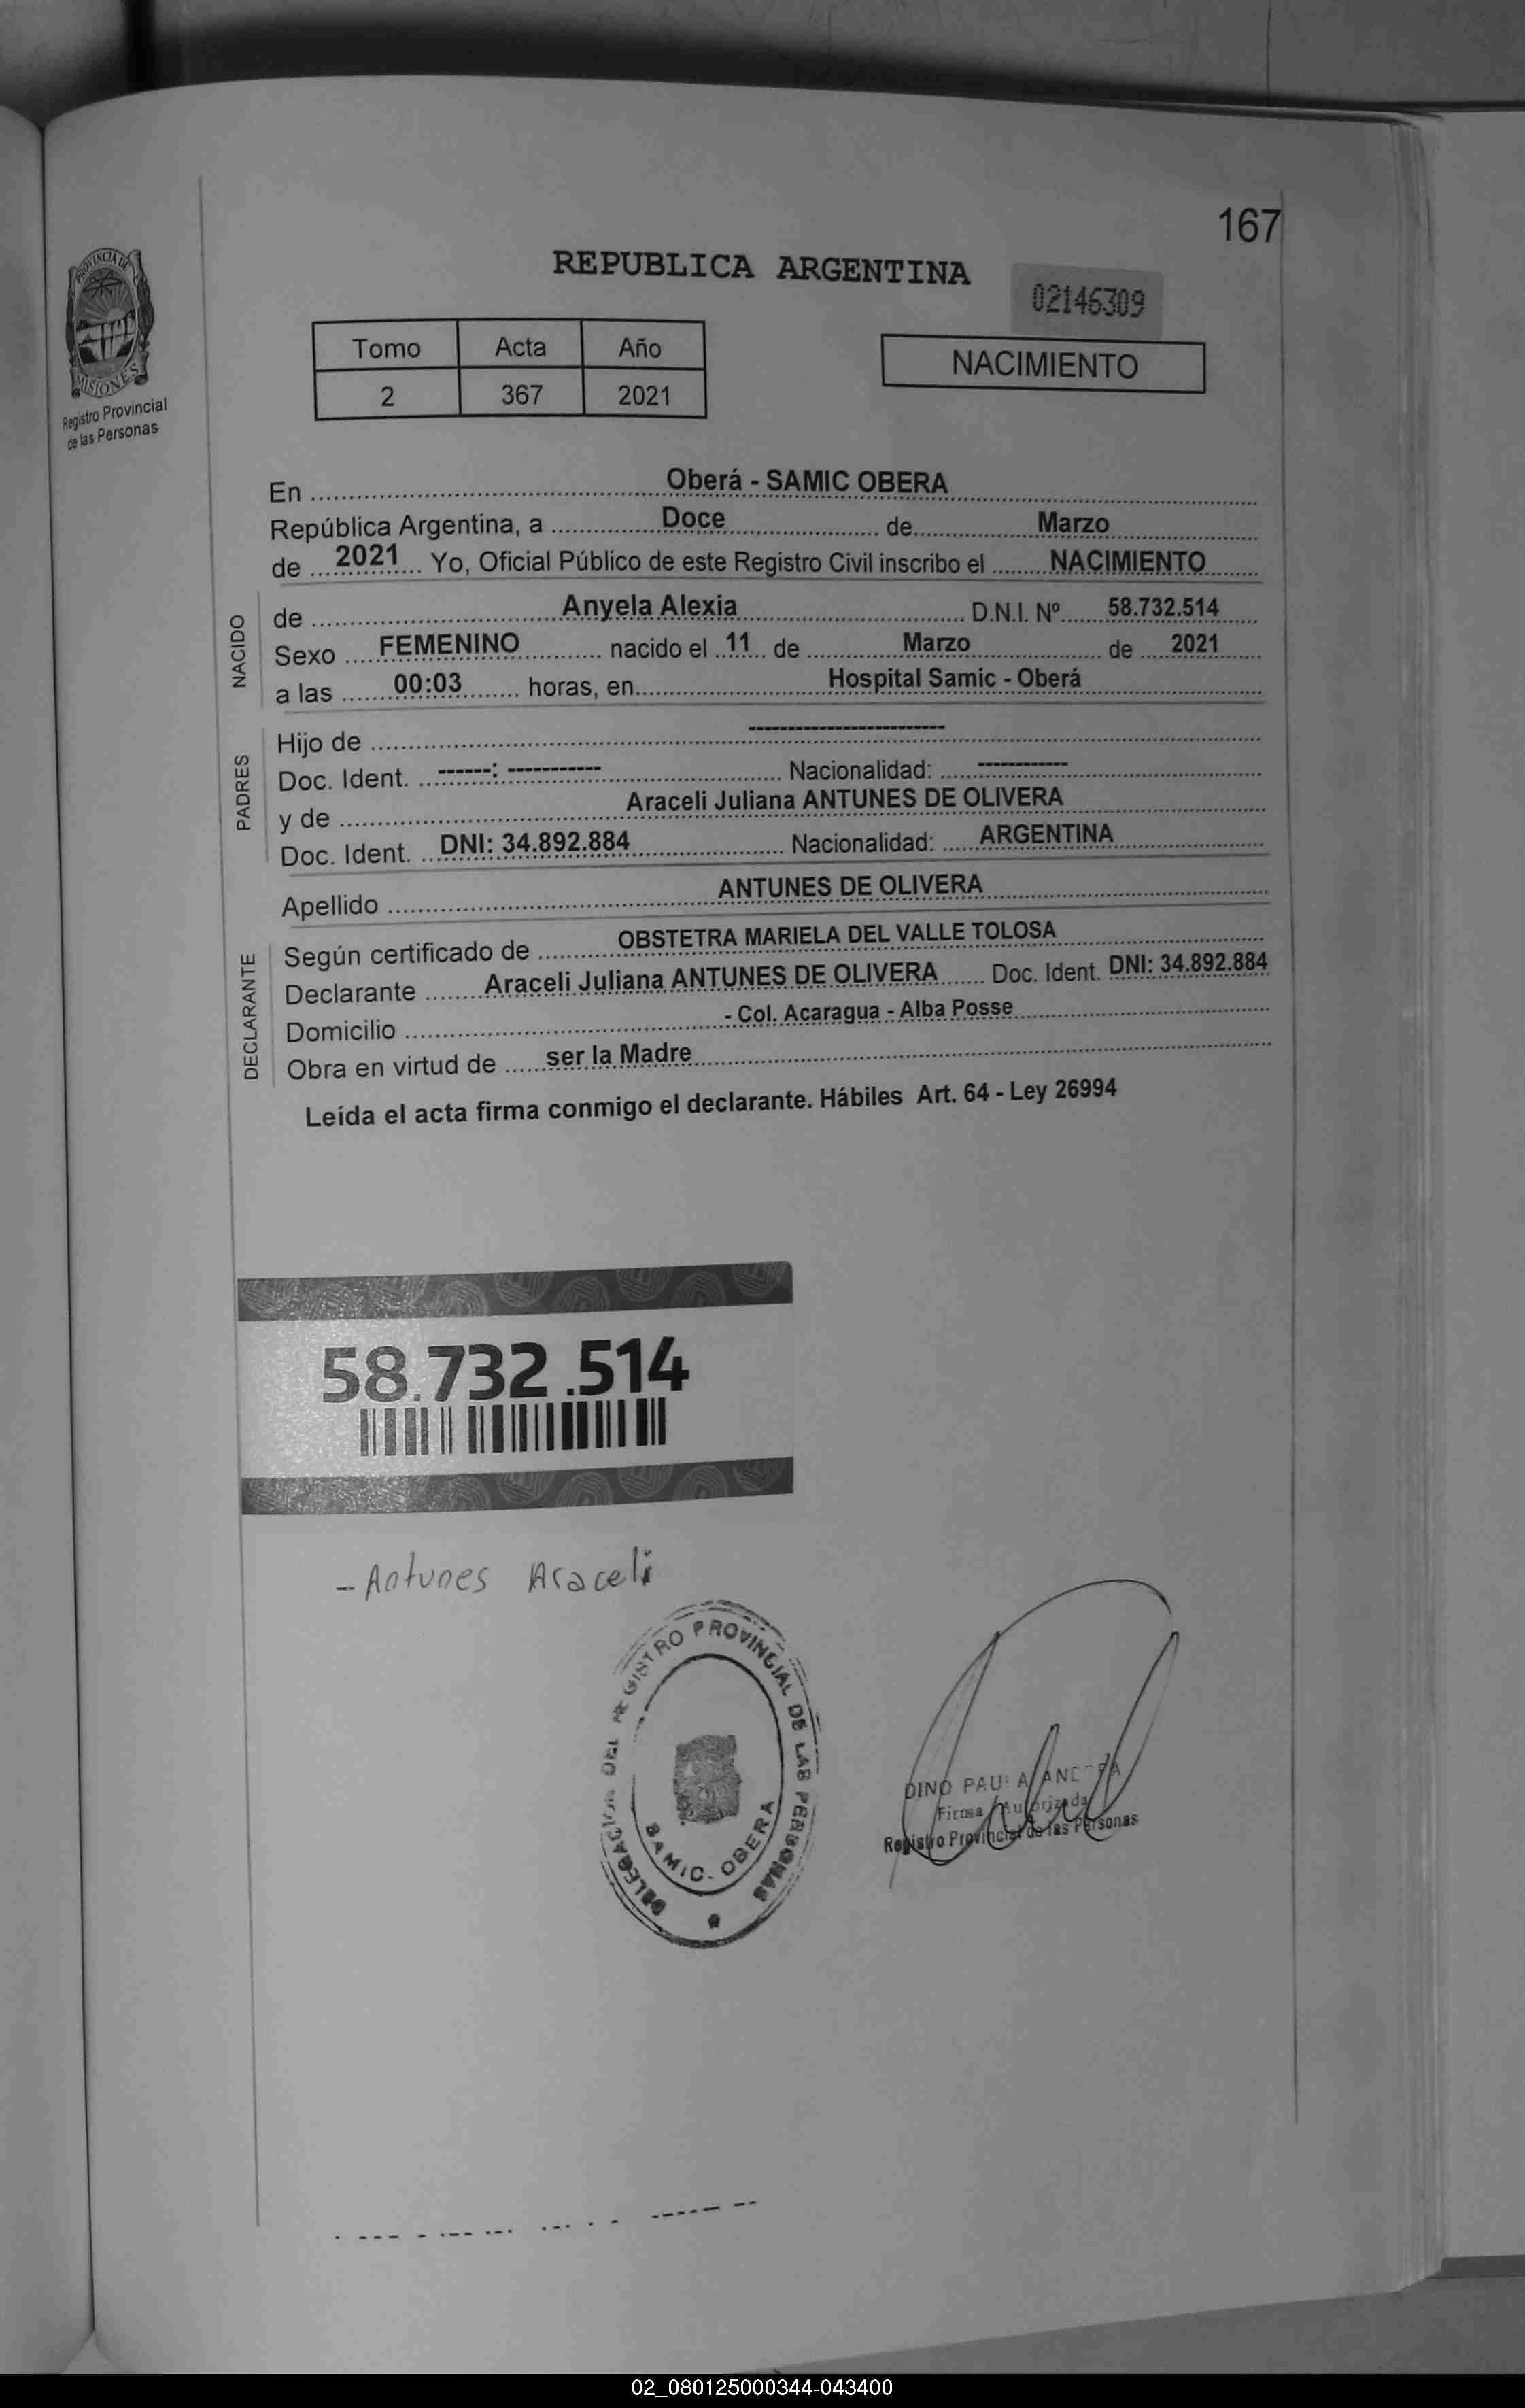 167
REPUBLICA ARGENTINA
02146309
PROVINCIA DE
MISIONES
Registro Provincial
de las Personas
Tomo Acta Año
2 367 2021
NACIMIENTO
En Oberá - SAMIC OBERA
República Argentina, a Doce de Marzo
de 2021 Yo, Oficial Público de este Registro Civil inscribo el NACIMIENTO
NACIDO
de Anyela Alexia D.N.I. Nº 58.732.514
Sexo FEMENINO nacido el 11 de Marzo de 2021
a las 00:03 horas, en Hospital Samic - Oberá
PADRES
Hijo de ------------------------
Doc. Ident. ------: ----------- Nacionalidad: -----------
y de Araceli Juliana ANTUNES DE OLIVERA
Doc. Ident. DNI: 34.892.884 Nacionalidad: ARGENTINA
Apellido ANTUNES DE OLIVERA
DECLARANTE
Según certificado de OBSTETRA MARIELA DEL VALLE TOLOSA
Declarante Araceli Juliana ANTUNES DE OLIVERA Doc. Ident. DNI: 34.892.884
Domicilio - Col. Acaragua - Alba Posse
Obra en virtud de ser la Madre
Leída el acta firma conmigo el declarante. Hábiles Art. 64 - Ley 26994
58.732.514
- Antunes Araceli
DELEGACION DEL REGISTRO PROVINCIAL DE LAS PERSONAS
SAMIC - OBERA
DINO PAULA ANDREA
Firma Autorizada
Registro Provincial de las Personas
02_080125000344-043400